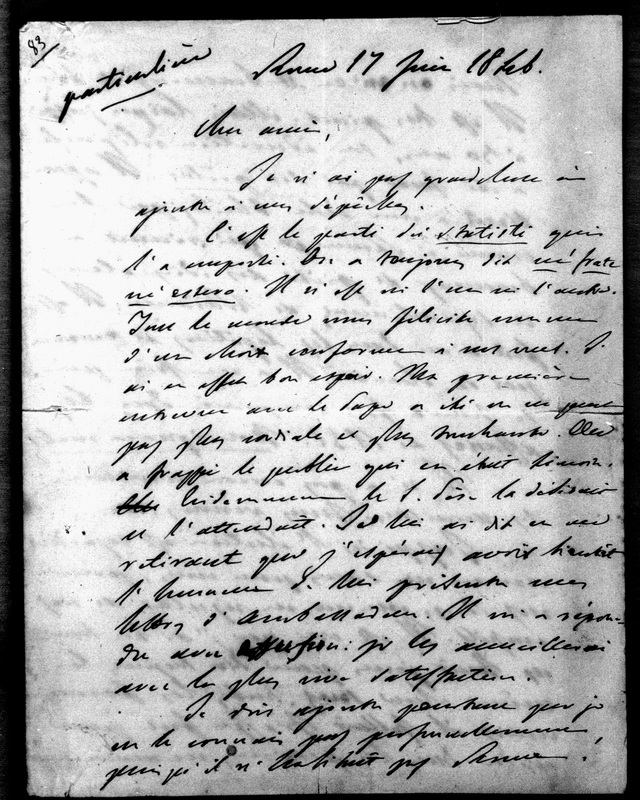 83
particulière
Rome 17 juin 1846.
Cher ami,
Je n'ai pas grand chose à
ajouter à mes dépêches.
C'est le parti des statisti qui
l'a emporté. On a toujours dit né frate
né estero. Il n'est ni l'un ni l'autre.
Tout le monde nous félicite comme
d'un choix conforme à nos vues. J'
ai en effet bon espoir. Ma première
entrevue avec le Pape a été on ne peut
pas plus cordiale et plus touchante. Elle
a frappé le public qui en était témoin.
Evidemment le S. Père la désirait
et l'attendait. Je lui ai dit en me
retirant que j'espérais avoir bientôt
l'honneur de lui présenter mes
lettres d'Ambassadeur. Il m'a répon-
du avec effusion: je les accueillerai
avec la plus vive satisfaction.
Je dois ajouter pourtant que je
ne le connais pas personnellement,
puisqu'il n'habitait pas Rome.